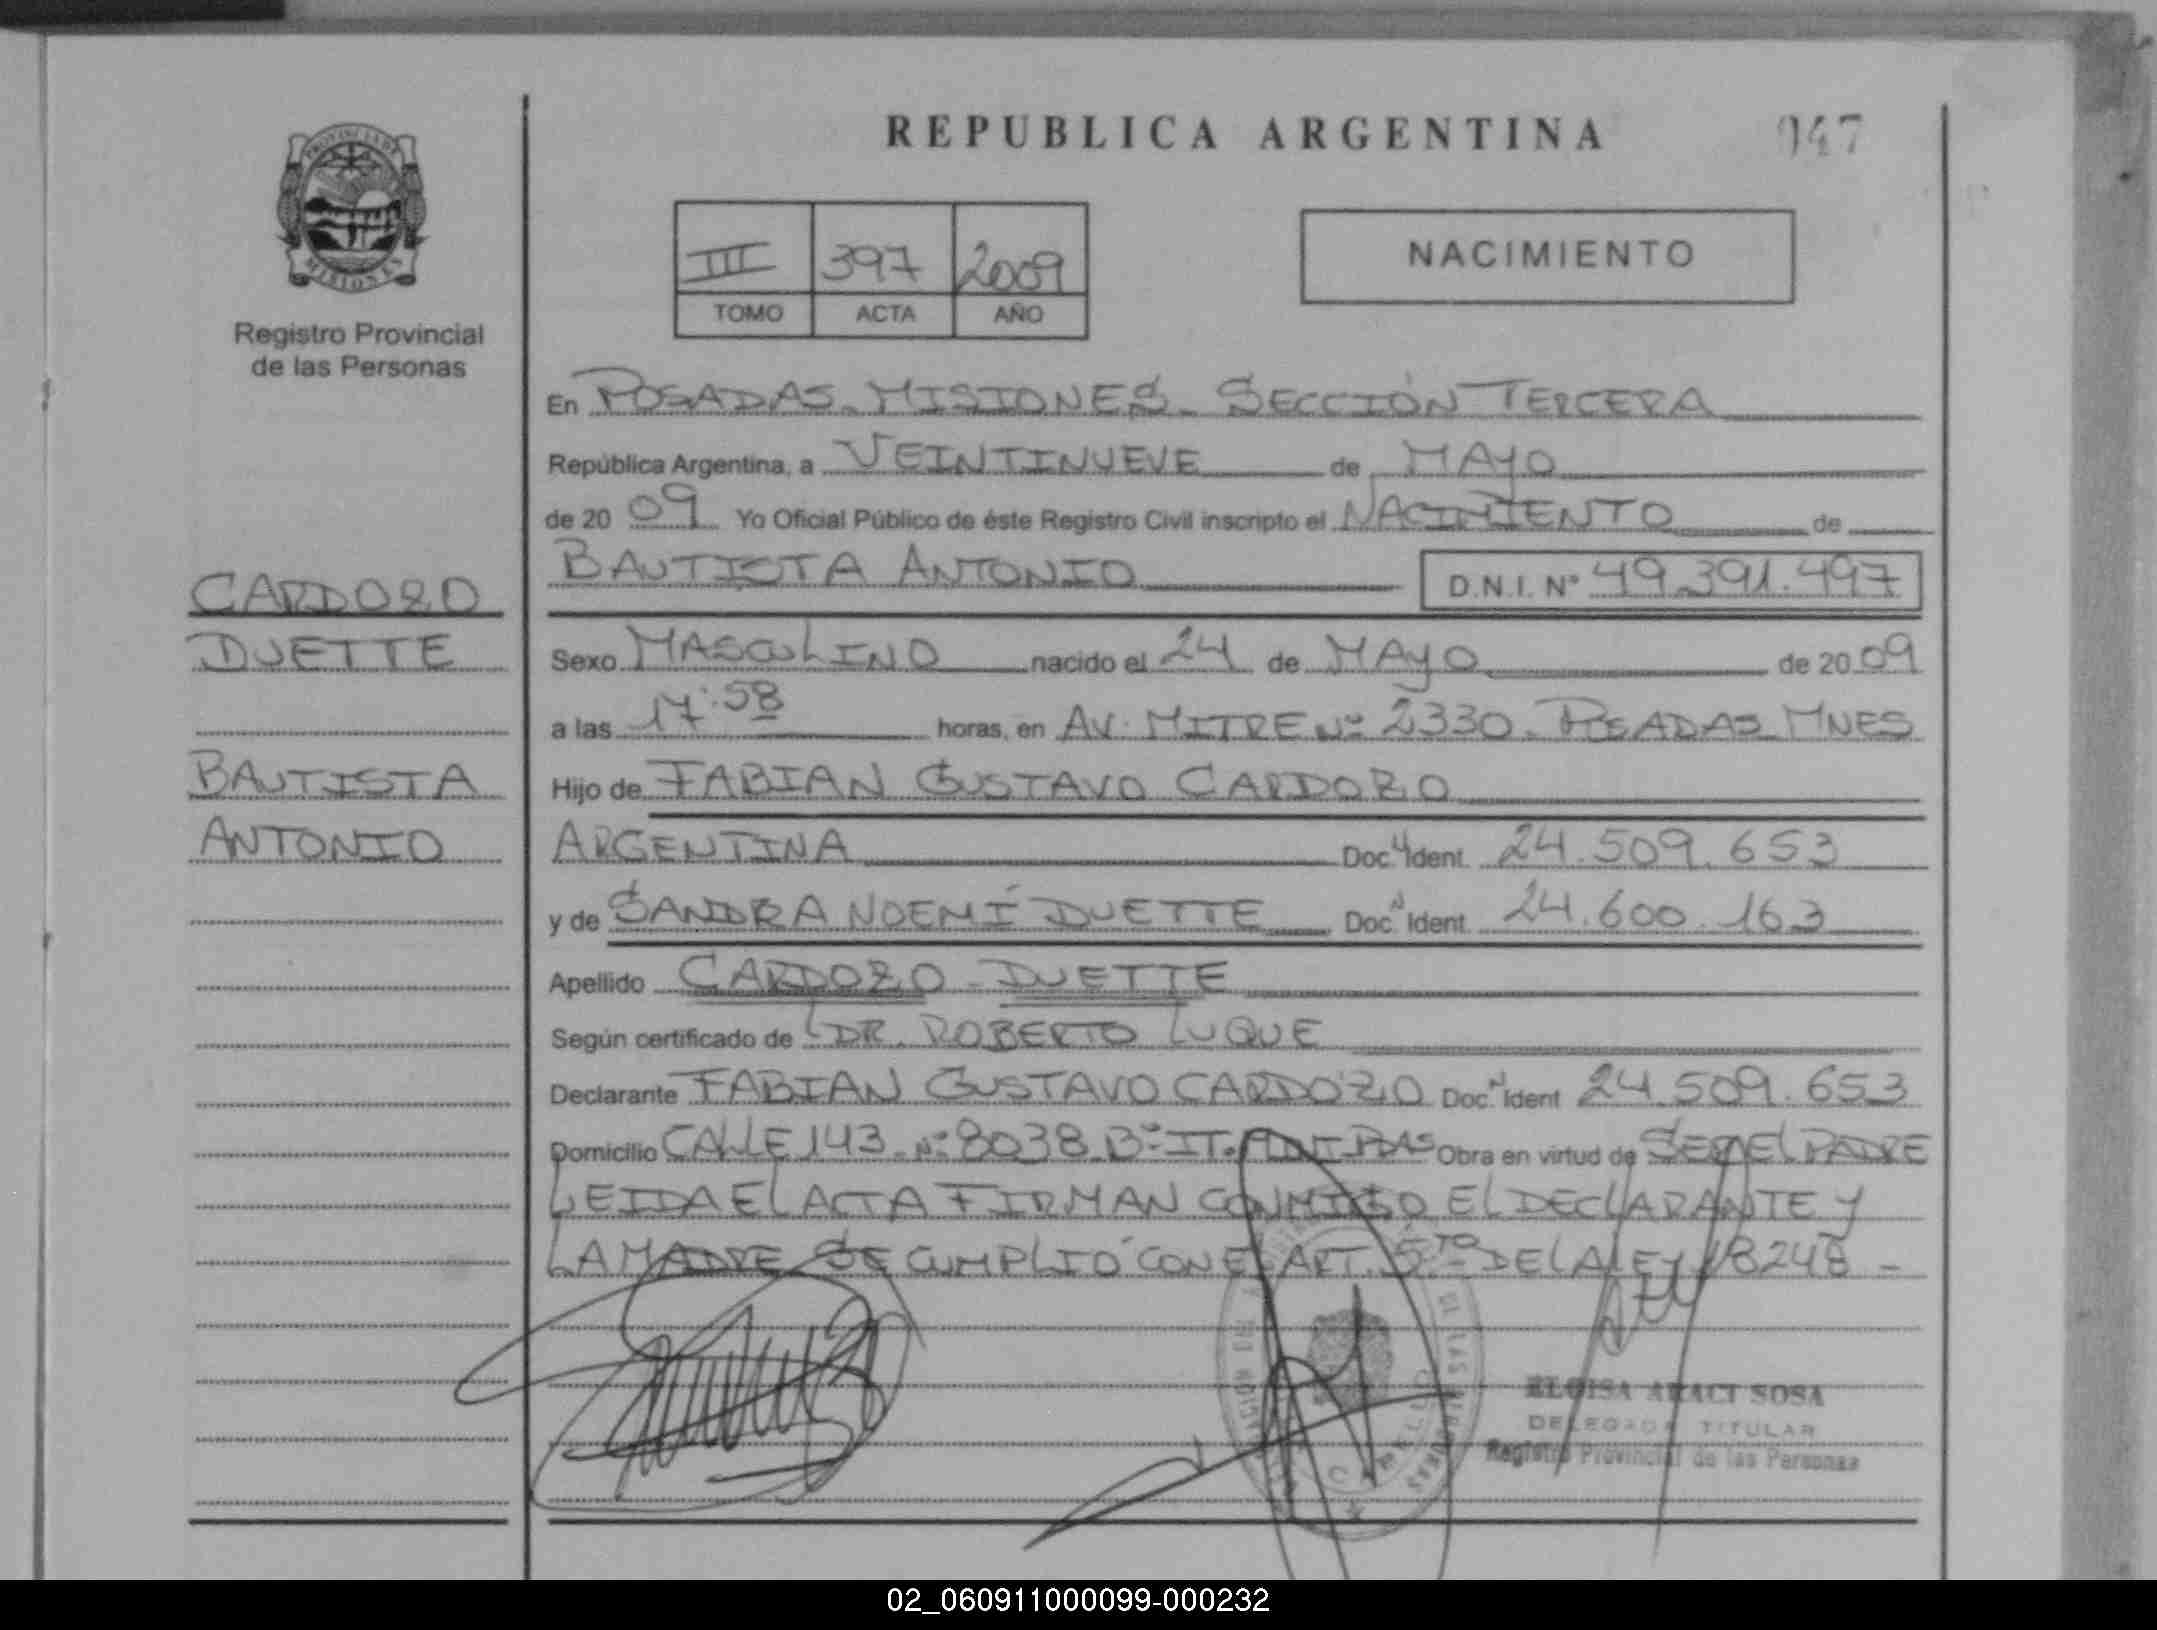 REPUBLICA ARGENTINA
047
PROVINCIA DE
MISIONES
Registro Provincial
de las Personas
III 397 2009
TOMO ACTA AÑO
NACIMIENTO
En POSADAS. MISIONES. SECCIÓN TERCERA
República Argentina, a VEINTINUEVE de MAYO
de 20 09 Yo Oficial Público de éste Registro Civil inscripto el NACIMIENTO de
BAUTISTA ANTONIO D.N.I. Nº 49.391.497
CARDOZO
DUETTE
BAUTISTA
ANTONIO
Sexo MASCULINO nacido el 24 de MAYO de 20 09
a las 17:58 horas, en AV. MITRE Nº 2330. POSADAS MNES
Hijo de FABIAN GUSTAVO CARDOZO
ARGENTINA Doc. Ident. 24.509.653
y de SANDRA NOEMÍ DUETTE Doc. Ident. 24.600.163
Apellido CARDOZO - DUETTE
Según certificado de DR. ROBERTO LUQUE
Declarante FABIAN GUSTAVO CARDOZO Doc. Ident 24.509.653
Domicilio CALLE 143 Nº 8038 Bº Obra en virtud de SER EL PADRE
LEIDA EL ACTA FIRMAN CONMIGO EL DECLARANTE Y
LA MADRE SE CUMPLIÓ CON EL ART. 5TO DE LA LEY 18248 -
ELOISA ARACI SOSA
DELEGADA TITULAR
Registro Provincial de las Personas
02_060911000099-000232